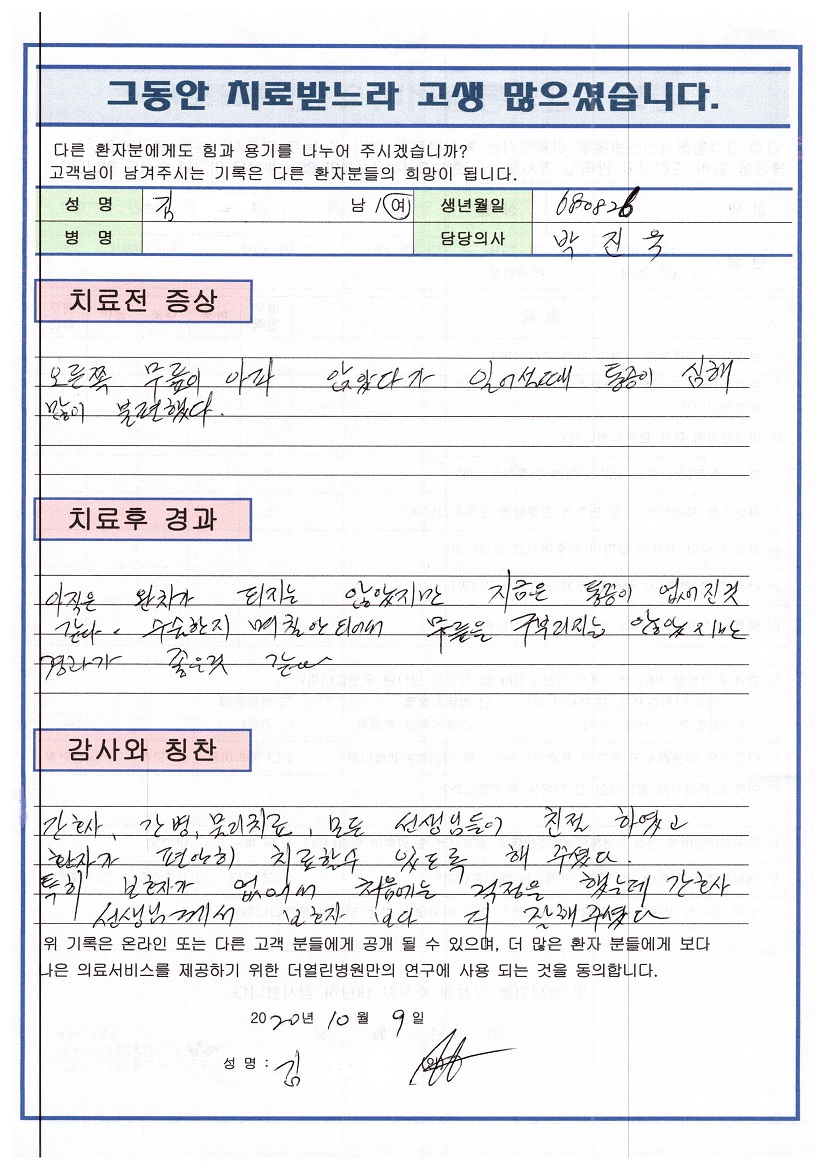 그동안 치료받느라 고생 많으셨습니다.
다른 환자분에게도 힘과 용기를 나누어 주시겠습니까?
고객님이 남겨주시는 기록은 다른 환자분들의 희망이 됩니다.
성 명 김 남 / 여 생년월일 680826
병 명 담당의사 박 진 욱
치료전 증상
오른쪽 무릎이 아파 앉았다가 일어설때 통증이 심해
많이 불편했다.
치료후 경과
아직은 완치가 되지는 않았지만 지금은 통증이 없어진것
같다. 수술한지 며칠안되어서 무릎을 구부리지는 않았지만
경과가 좋은것 같다
감사와 칭찬
간호사, 간병, 물리치료, 모든 선생님들이 친절 하였고
환자가 편안히 치료할수 있도록 해 주였다.
특히 보호자가 없어서 처음에는 걱정을 했는데 간호사
선생님께서 보호자 보다 더 잘해주였다
위 기록은 온라인 또는 다른 고객 분들에게 공개 될 수 있으며, 더 많은 환자 분들에게 보다
나은 의료서비스를 제공하기 위한 더열린병원만의 연구에 사용 되는 것을 동의합니다.
2020년 10월 9일
성 명 : 김 (인)